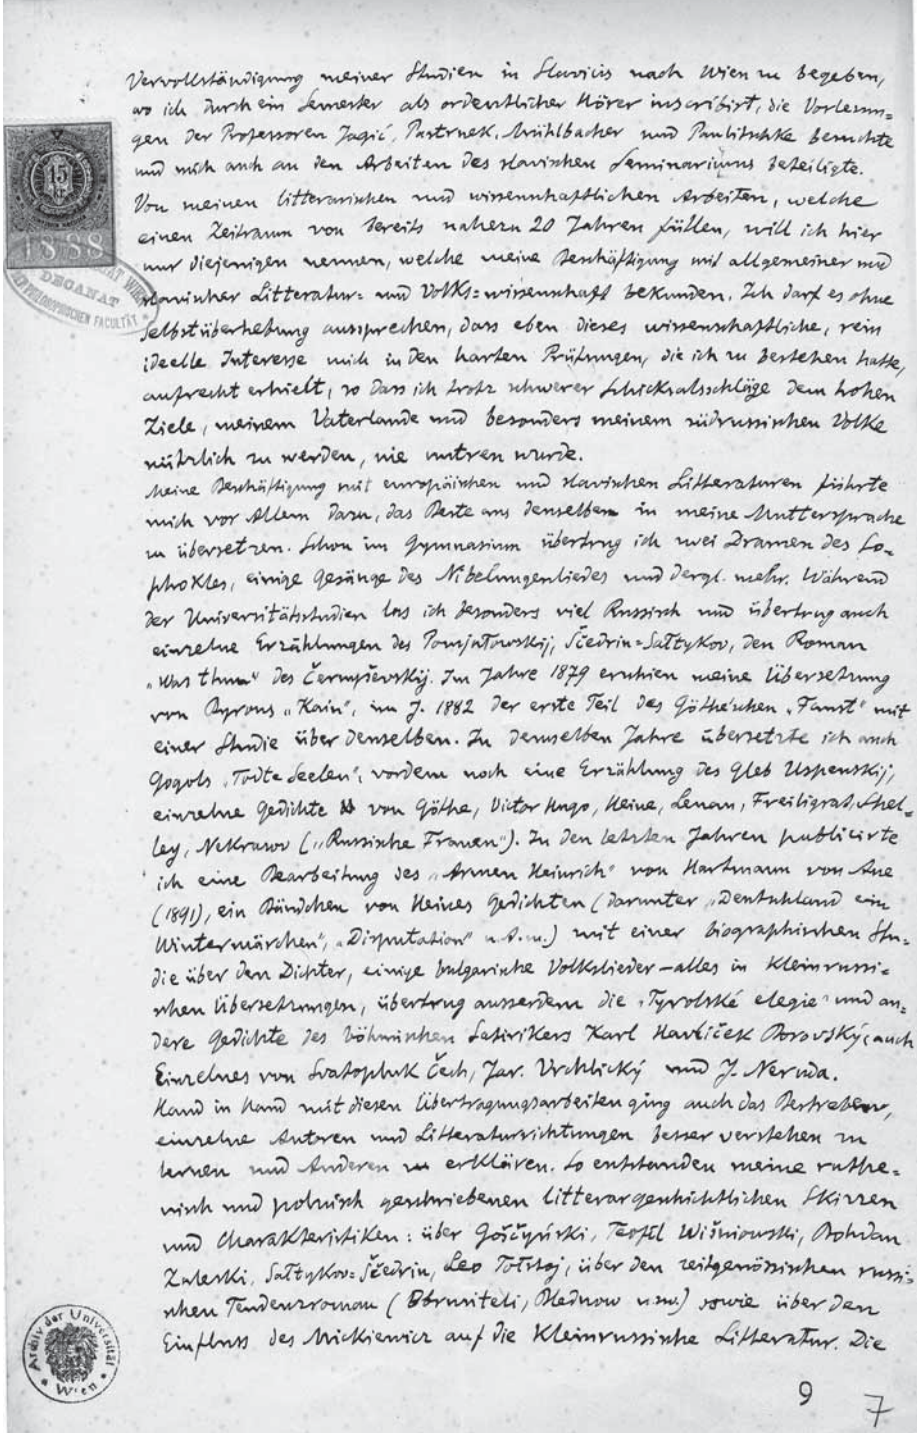 Vervollständigung meiner Studien in Slavicis nach Wien zu begeben,
wo ich durch ein Semester als ordentlicher Hörer inscribirt, die Vorlesun=
gen der Professoren Jagić, Pastrnek, Mühlbacher und Paulitschke besuchte
und mich auch an den Arbeiten des slavischen Seminariums beteiligte.
Von meinen litterarischen und wissenschaftlichen Arbeiten, welche
einen Zeitraum von bereits nahezu 20 Jahren füllen, will ich hier
nur diejenigen nennen, welche meine Beschäftigung mit allgemeiner und
slavischer Litteratur= und Volks=wissenschaft bekunden. Ich darf es ohne
Selbstüberhebung aussprechen, dass eben dieses wissenschaftliche, rein
ideelle Interesse mich in den harten Prüfungen, die ich zu bestehen hatte,
aufrecht erhielt, so dass ich trotz schwerer Schicksalsschläge dem hohen
Ziele, meinem Vaterlande und besonders meinem südrussischen Volke
nützlich zu werden, nie untreu wurde.
Meine Beschäftigung mit europäischen und slavischen Litteraturen führte
mich vor Allem dazu, das Beste aus denselben in meine Muttersprache
zu übersetzen. Schon im Gymnasium übertrug ich zwei Dramen des So=
phokles, einige Gesänge des Nibelungenliedes und dergl. mehr. Während
der Universitätsstudien las ich besonders viel Russisch und übertrug auch
einzelne Erzählungen des Pomjałowskij, Ščedrin=Sałtykov, den Roman
„Was thun" des Černyševskij. Im Jahre 1879 erschien meine Übersetzung
von Byrons „Kain", im J. 1882 der erste Teil des Göthe'schen „Faust" mit
einer Studie über denselben. In demselben Jahre übersetzte ich auch
Gogols „Todte Seelen", vordem noch eine Erzählung des Gleb Uspenskij,
einzelne Gedichte von Göthe, Victor Hugo, Heine, Lenau, Freiligrat, Shel=
ley, Nekrasov („Russische Frauen"). In den letzten Jahren publicirte
ich eine Bearbeitung des „Armen Heinrich" von Hartmann von Aue
(1891), ein Bändchen von Heines Gedichten (darunter „Deutschland ein
Wintermärchen", „Disputation" u. A. m.) mit einer biographischen Stu=
die über den Dichter, einige bulgarische Volkslieder – alles in Kleinrussi=
schen Übersetzungen, übertrug ausserdem die „Tyrolské elegie" und an=
dere Gedichte des böhmischen Satirikers Karl Havlíček Borovský, auch
Einzelnes von Svatopluk Čech, Jar. Vrchlický und J. Neruda.
Hand in Hand mit diesen Übertragungsarbeiten ging auch das Bestreben,
einzelne Autoren und Litteraturrichtungen besser verstehen zu
lernen und Anderen zu erklären. So entstanden meine ruthe=
nisch und polnisch geschriebenen litterargeschichtlichen Skizzen
und Charakteristiken: über Goščyński, Teofil Wiśniowski, Bohdan
Zaleski, Sałtykov=Ščedrin, Leo Tołstoj, über den zeitgenössischen russi=
schen Tendenzroman (Obrusiteli, Blednow usw.) sowie über den
Einfluss des Mickiewicz auf die Kleinrussische Litteratur. Die
9
7
15
1888
DECANAT
PHILOSOPHISCHEN FACULTÄT
Archiv der Universität
Wien